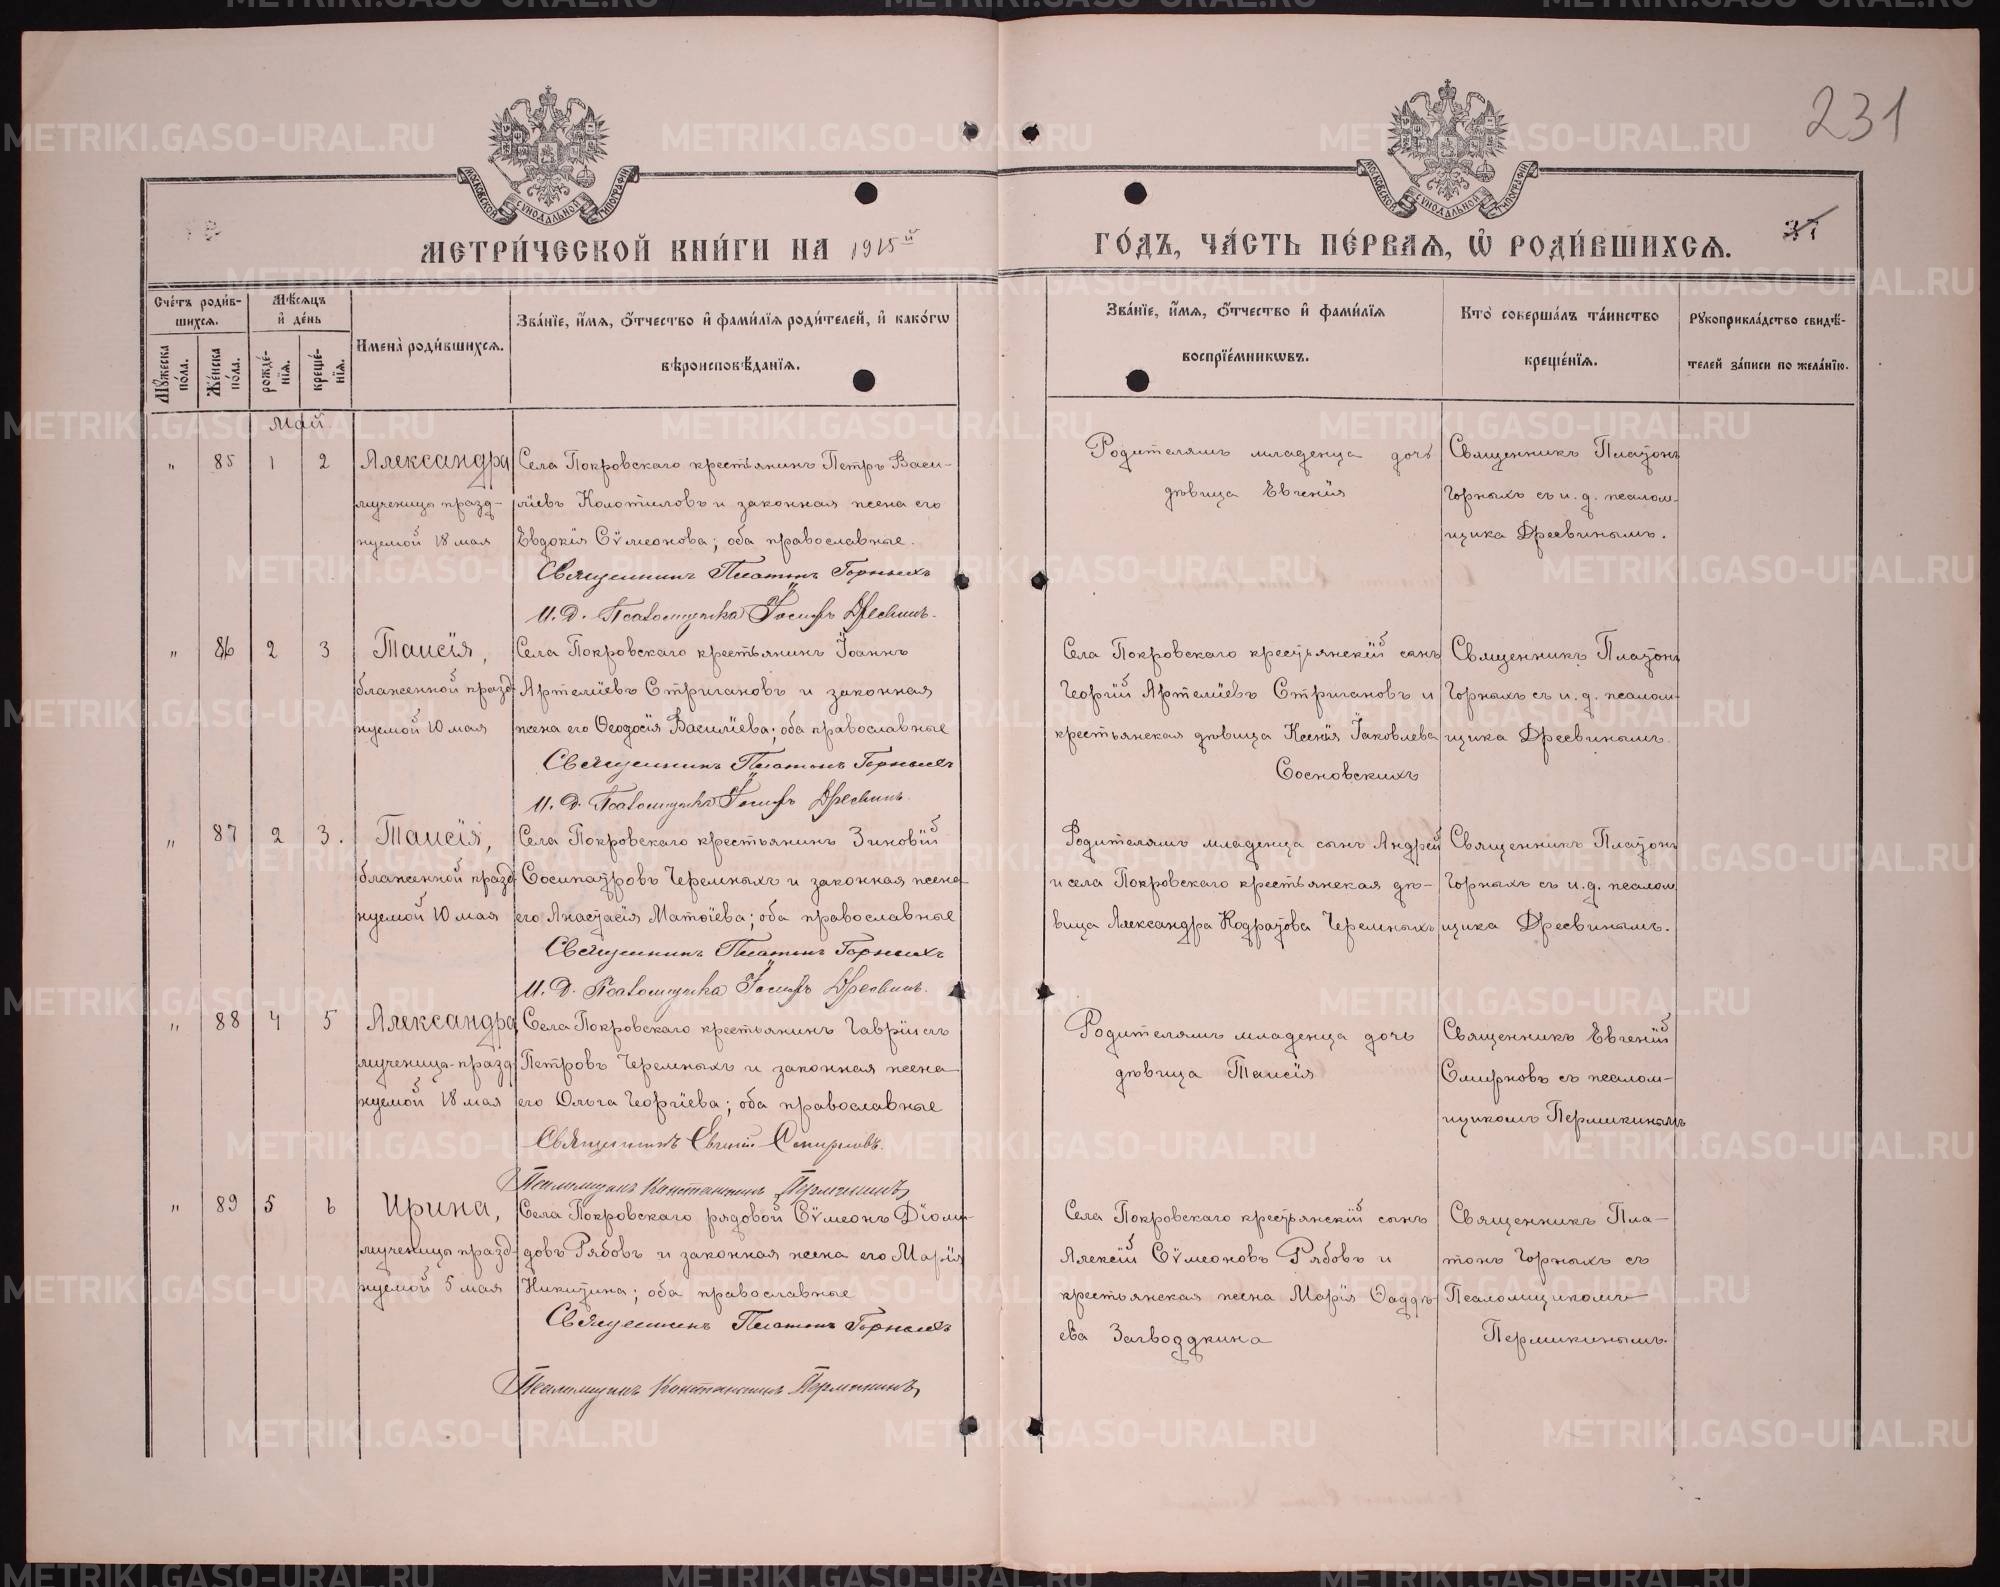 231
МОСКОВСКОЙ СѴНОДАЛЬНОЙ ТИПОГРАФІИ
МОСКОВСКОЙ СѴНОДАЛЬНОЙ ТИПОГРАФІИ
37
МЕТРИ́ЧЕСКОЙ КНИ́ГИ НА 1915й ГО́ДЪ, ЧА́СТЬ ПЕ́РВАѦ, Ѡ РОДИ́ВШИХСѦ.
Сче́тъ роди́вшихсѧ.
Мꙋ́жеска по́ла.
Же́нска по́ла.
Мѣ́сѧцъ и҆ де́нь
рожде́нїѧ.
креще́нїѧ.
И҆мена̀ роди́вшихсѧ.
Зва́нїе, и҆́мѧ, ѻ҆́тчество и҆ фами́лїѧ роди́телей, и҆ како́гѡ
вѣроисповѣ́данїѧ.
Зва́нїе, и҆́мѧ, ѻ҆́тчество и҆ фами́лїѧ
воспрїе́мникѡвъ.
Кто̀ соверша́лъ та́инство
креще́нїѧ.
Рꙋкоприкла́дство свидѣ́-
телей за́писи по жела́нїю.
Май
" 85 1 2
Александра
мученицы празд-
нуемой 18 мая
Села Покровскаго крестьянинъ Петръ Васи-
лїевъ Колотиловъ и законная жена его
Евдокїя Сѵмеонова; оба православные.
Священникъ Платонъ Горныхъ
И. Д. Псаломщика Іосифъ Дресвинъ.
Родителямъ младенца дочь
дѣвица Евгенїя
Священникъ Платонъ
Горныхъ съ и. д. псалом-
щика Дресвинымъ.
" 86 2 3
Таисїя,
блаженной празд-
нуемой 10 мая
Села Покровскаго крестьянинъ Їоаннъ
Артемїевъ Стригановъ и законная
жена его Ѳеодосїя Василїева; оба православные
Священникъ Платонъ Горныхъ
И. Д. Псаломщика Іосифъ Дресвинъ.
Села Покровскаго крестьянскїй сынъ
Георгїй Артемїевъ Стригановъ и
крестьянская дѣвица Ксенїя Їаковлева
Сосновскихъ
Священникъ Платонъ
Горныхъ съ и. д. псалом-
щика Дресвинымъ.
" 87 2 3.
Таисїя,
блаженной празд-
нуемой 10 мая
Села Покровскаго крестьянинъ Зиновїй
Сосипатровъ Черемныхъ и законная жена
его Анастасїя Матѳїева; оба православные
Священникъ Платонъ Горныхъ
И. Д. Псаломщика Іосифъ Дресвинъ.
Родителямъ младенца сынъ Андрей
и села Покровскаго крестьянская дѣ-
вица Александра Кодратова Черемныхъ
Священникъ Платонъ
Горныхъ съ и. д. псалом
щика Дресвинымъ.
" 88 4 5
Александра
мученицы празд
нуемой 18 мая
Села Покровскаго крестьянинъ Гаврїилъ
Петровъ Черемныхъ и законная жена
его Ольга Георгїева; оба православные
Священникъ Евгенїй Смирновъ.
Псаломщикъ Константинъ Пермикинъ
Родителямъ младенца дочь
дѣвица Таисїя
Священникъ Евгенїй
Смирновъ съ псалом-
щикомъ Пермикинымъ
" 89 5 6
Ирина,
мученицы празд-
нуемой 5 мая
Села Покровскаго рядовой Сѵмеонъ Дїоми-
довъ Рябовъ и законная жена его Марїя
Никитина; оба православные
Священникъ Платонъ Горныхъ
Псаломщикъ Константинъ Пермикинъ
Села Покровскаго крестьянскїй сынъ
Алексїй Сѵмеоновъ Рябовъ и
крестьянская жена Марїя Ѳадде-
ева Загвоздкина
Священникъ Пла-
тонъ Горныхъ съ
Псаломщикомъ
Пермикинымъ.
METRIKI.GASO-URAL.RU